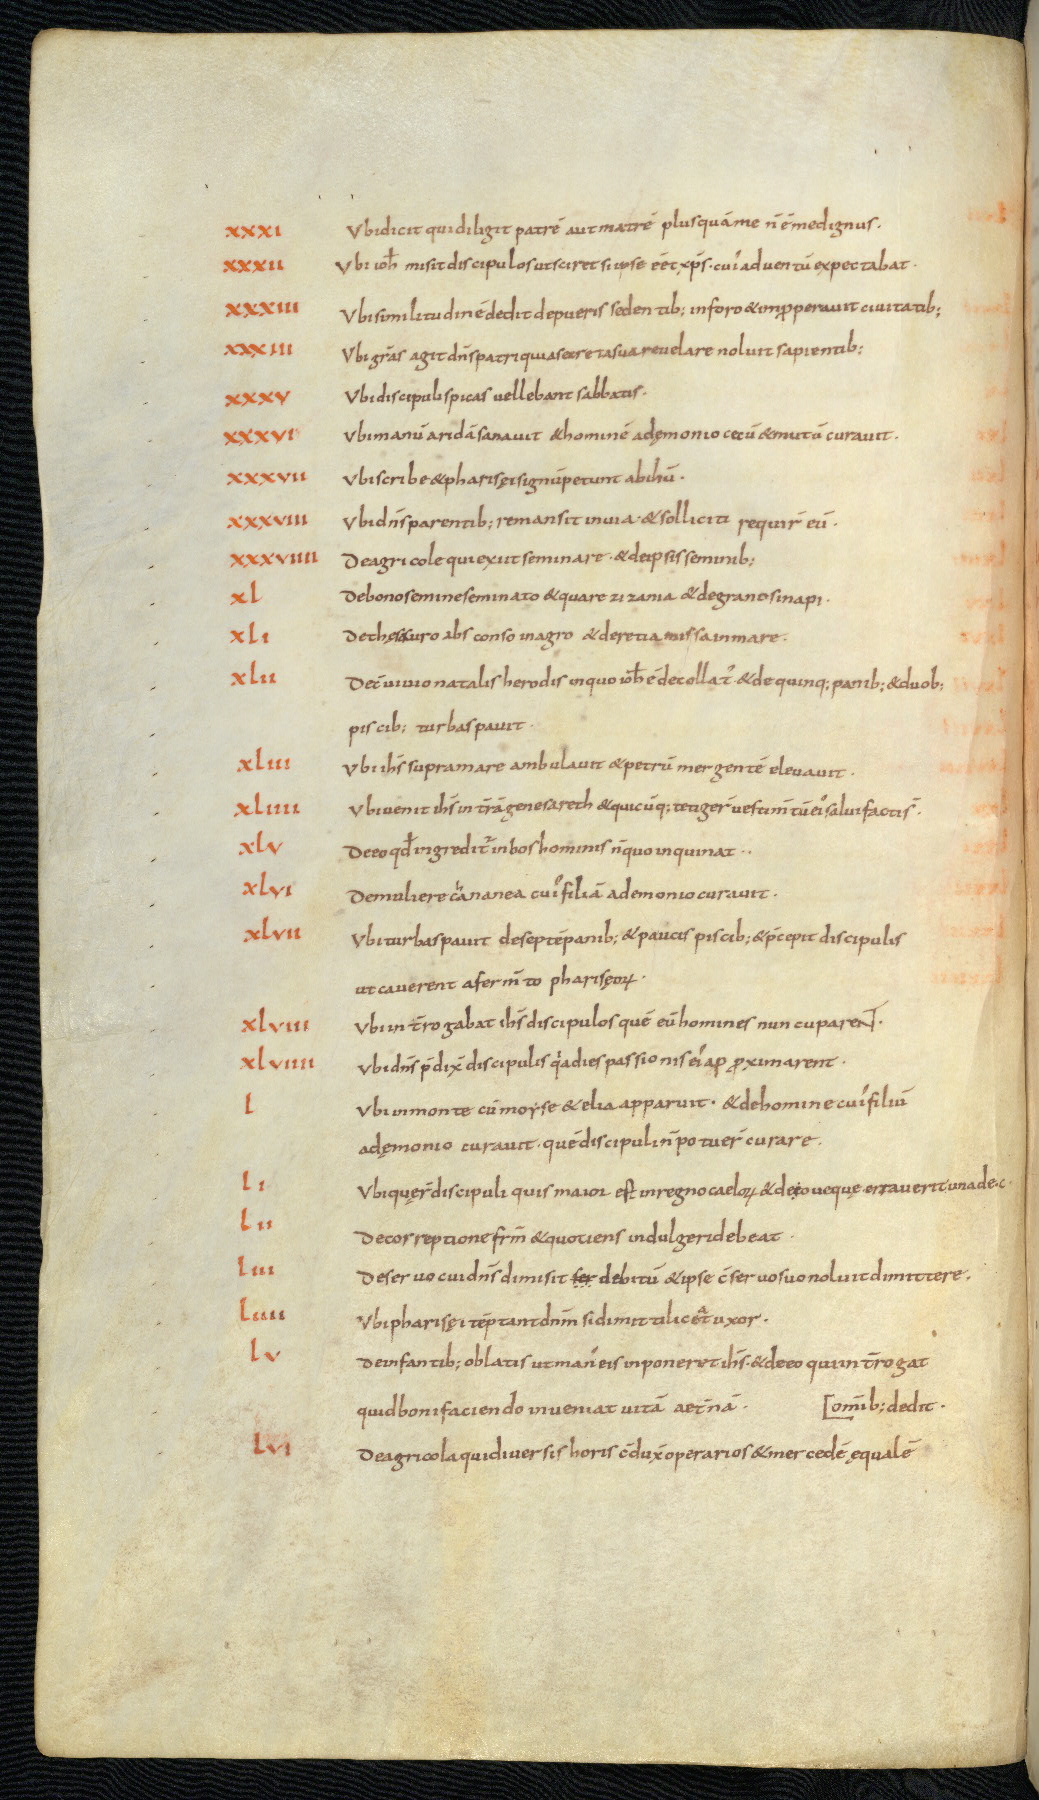 xxxi Vbi dicit qui diligit patrē aut matrē plus quā me n̄ ē me dignus.
xxxii Vbi ioh̄ misit discipulos ut sciret si ipse eēt xp̄s. cui' aduentū expectabat.
xxxiii Vbi similitudinē dedit de pueris sedentib; in foro & improperauit ciuitatib;
xxxiiii Vbi grās agit dn̄s patri quia secreta sua reuelare noluit sapientib;
xxxv Vbi discipuli spicas uellebant sabbatis.
xxxvi Vbi manū aridā sanauit & hominē a dęmonio cecū & mutū curauit.
xxxvii Vbi scribe & pharisęi signū petunt ab ih̄u.
xxxviii Vbi dn̄s parentib; remansit in uia. & solliciti requir̄ eū.
xxxviiii De agricole qui exiit seminare. & de ipsis seminib;
xl De bono semine seminato & quare zizania & de grano sinapi.
xli De thęsauro absconso in agro & de retia missa in mare.
xlii De c̄uiuio natalis herodis in quo ioh̄ ē decollat'. & de quinq; panib; & duob;
piscib; turbas pauit.
xliii Vbi ih̄s supra mare ambulauit & petrū mergentē eleuauit.
xliiii Vbi uenit ih̄s in t̄rā genesareth & quicūq; tetiger̄ uestim̄tū ei' salui facti s̄.
xlv De eo qd̄ ingredit' in bos hominis n̄ quo inquinat..
xlvi De muliere chananea cui' filiā a demonio curauit.
xlvii Vbi turbas pauit de septē panib; & paucis piscib; & p̄cepit discipulis
ut cauerent a ferm̄to pharisęoꝝ.
xlviii Vbi int̄rogabat ih̄s discipulos quē eū homines nuncuparent.
xlviiii Vbi dn̄s p̄dix̄ discipulis qa dies passionis ei' approximarent.
l Vbi in monte cū moyse & elia apparuit. & de homine cui' filiū
a dęmonio curauit. quē discipuli n̄ potuer̄ curare.
li Vbi quęr̄ discipuli quis maior est in regno caeloꝝ & de eo ue que errauerit una de .c.
lii De correptione fr̄m & quotiens indulgeri debeat.
liii De seruo cui dn̄s dimisit ser debitū & ipse c̄seruo suo noluit dimittere.
liiii Vbi pharisęi tēptant dn̄m si dimitti liceat uxor.
lv De infantib; oblatis ut man' eis inponeret ih̄s. & de eo qui int̄rogat
quid boni faciendo inueniat uitā aet̄nā. [om̄ib; dedit.
lvi De agricola qui diuersis horis c̄dux̄ operarios & mercedē ęqualē